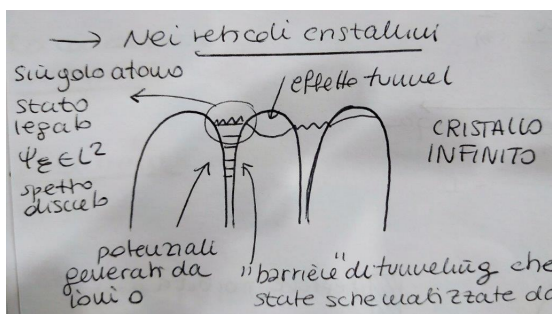 → Nei reticoli cristallini
singolo atomo
effetto tunnel
stato
legato
ψ_E ∈ L²
spettro
discreto
CRISTALLO
INFINITO
potenziali
generati da
ioni
"barriere" di tunneling che
state schematizzate da